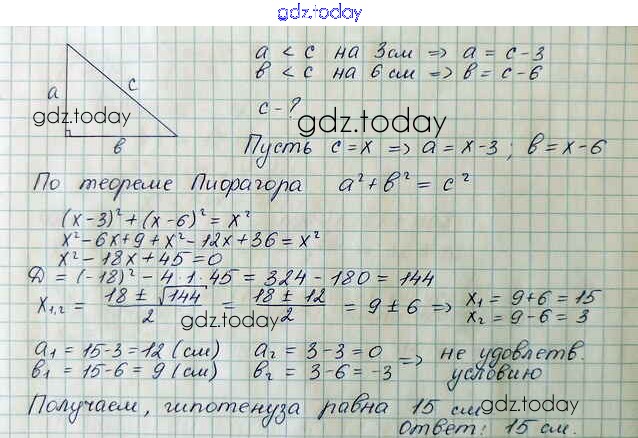 gdz.today
a < c на 3 см => a = c - 3
в < c на 6 см => в = c - 6
a
c
в
gdz.today
c - ?
gdz.today
Пусть c = x => a = x - 3 ; в = x - 6
По теореме Пифагора a² + в² = c²
(x - 3)² + (x - 6)² = x²
x² - 6x + 9 + x² - 12x + 36 = x²
x² - 18x + 45 = 0
D = (-18)² - 4·1·45 = 324 - 180 = 144
x₁,₂ = (18 ± √144)/2 = (18 ± 12)/2 = 9 ± 6 => x₁ = 9 + 6 = 15
x₂ = 9 - 6 = 3
gdz.today
a₁ = 15 - 3 = 12 (см) a₂ = 3 - 3 = 0 => не удовлетв.
в₁ = 15 - 6 = 9 (см) в₂ = 3 - 6 = -3 условию
Получаем, гипотенуза равна 15 см
gdz.today
Ответ: 15 см.